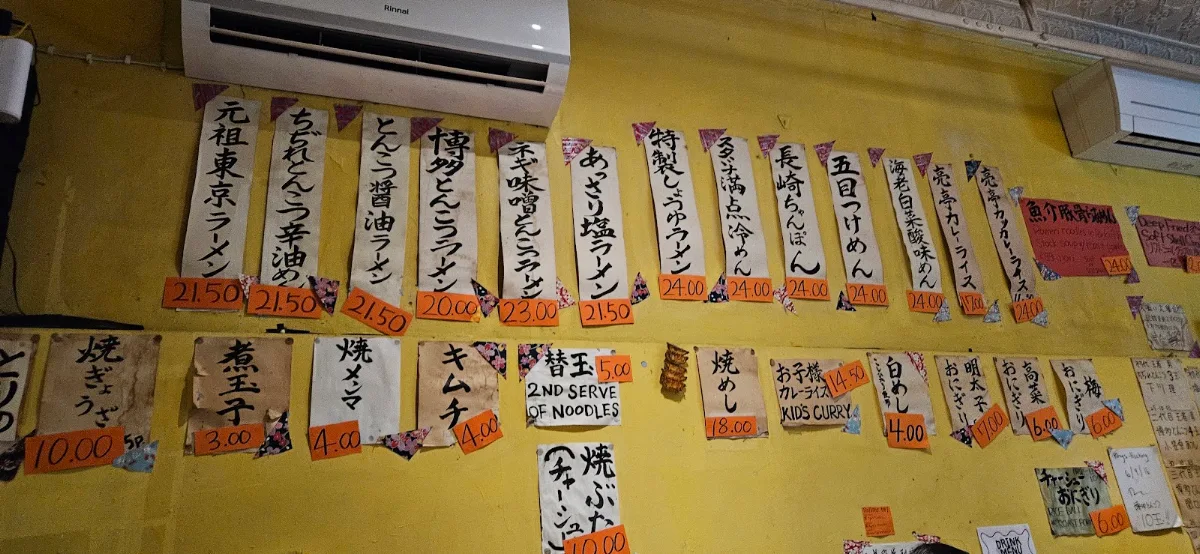 Rinnai
元祖東京ラーメン
21.50
ちぢれとんこつ辛油めん
21.50
とんこつ醤油ラーメン
21.50
博多とんこつラーメン
20.00
ネギ味噌とんこつラーメン
23.00
あっさり塩ラーメン
21.50
特製しょうゆラーメン
24.00
スタミナ満点冷めん
24.00
長崎ちゃんぽん
24.00
五目つけめん
24.00
海老白菜酸味めん
24.00
亮亭カレーライス
17.00
亮亭カツカレーライス
24.00
魚介豚骨
24.00
Deep Fried
Soft Shell
焼ぎょうざ
10.00
5P
煮玉子
3.00
焼メンマ
4.00
キムチ
4.00
替玉
5.00
2ND SERVE
OF NOODLES
焼めし
18.00
お子様
カレーライス
14.50
KID'S CURRY
白めし
4.00
明太子
おにぎり
7.00
高菜
おにぎり
6.00
梅
おにぎり
6.00
焼ぶた
(チャーシュー
10.00
チャーシュー
おにぎり
6.00
DRINK